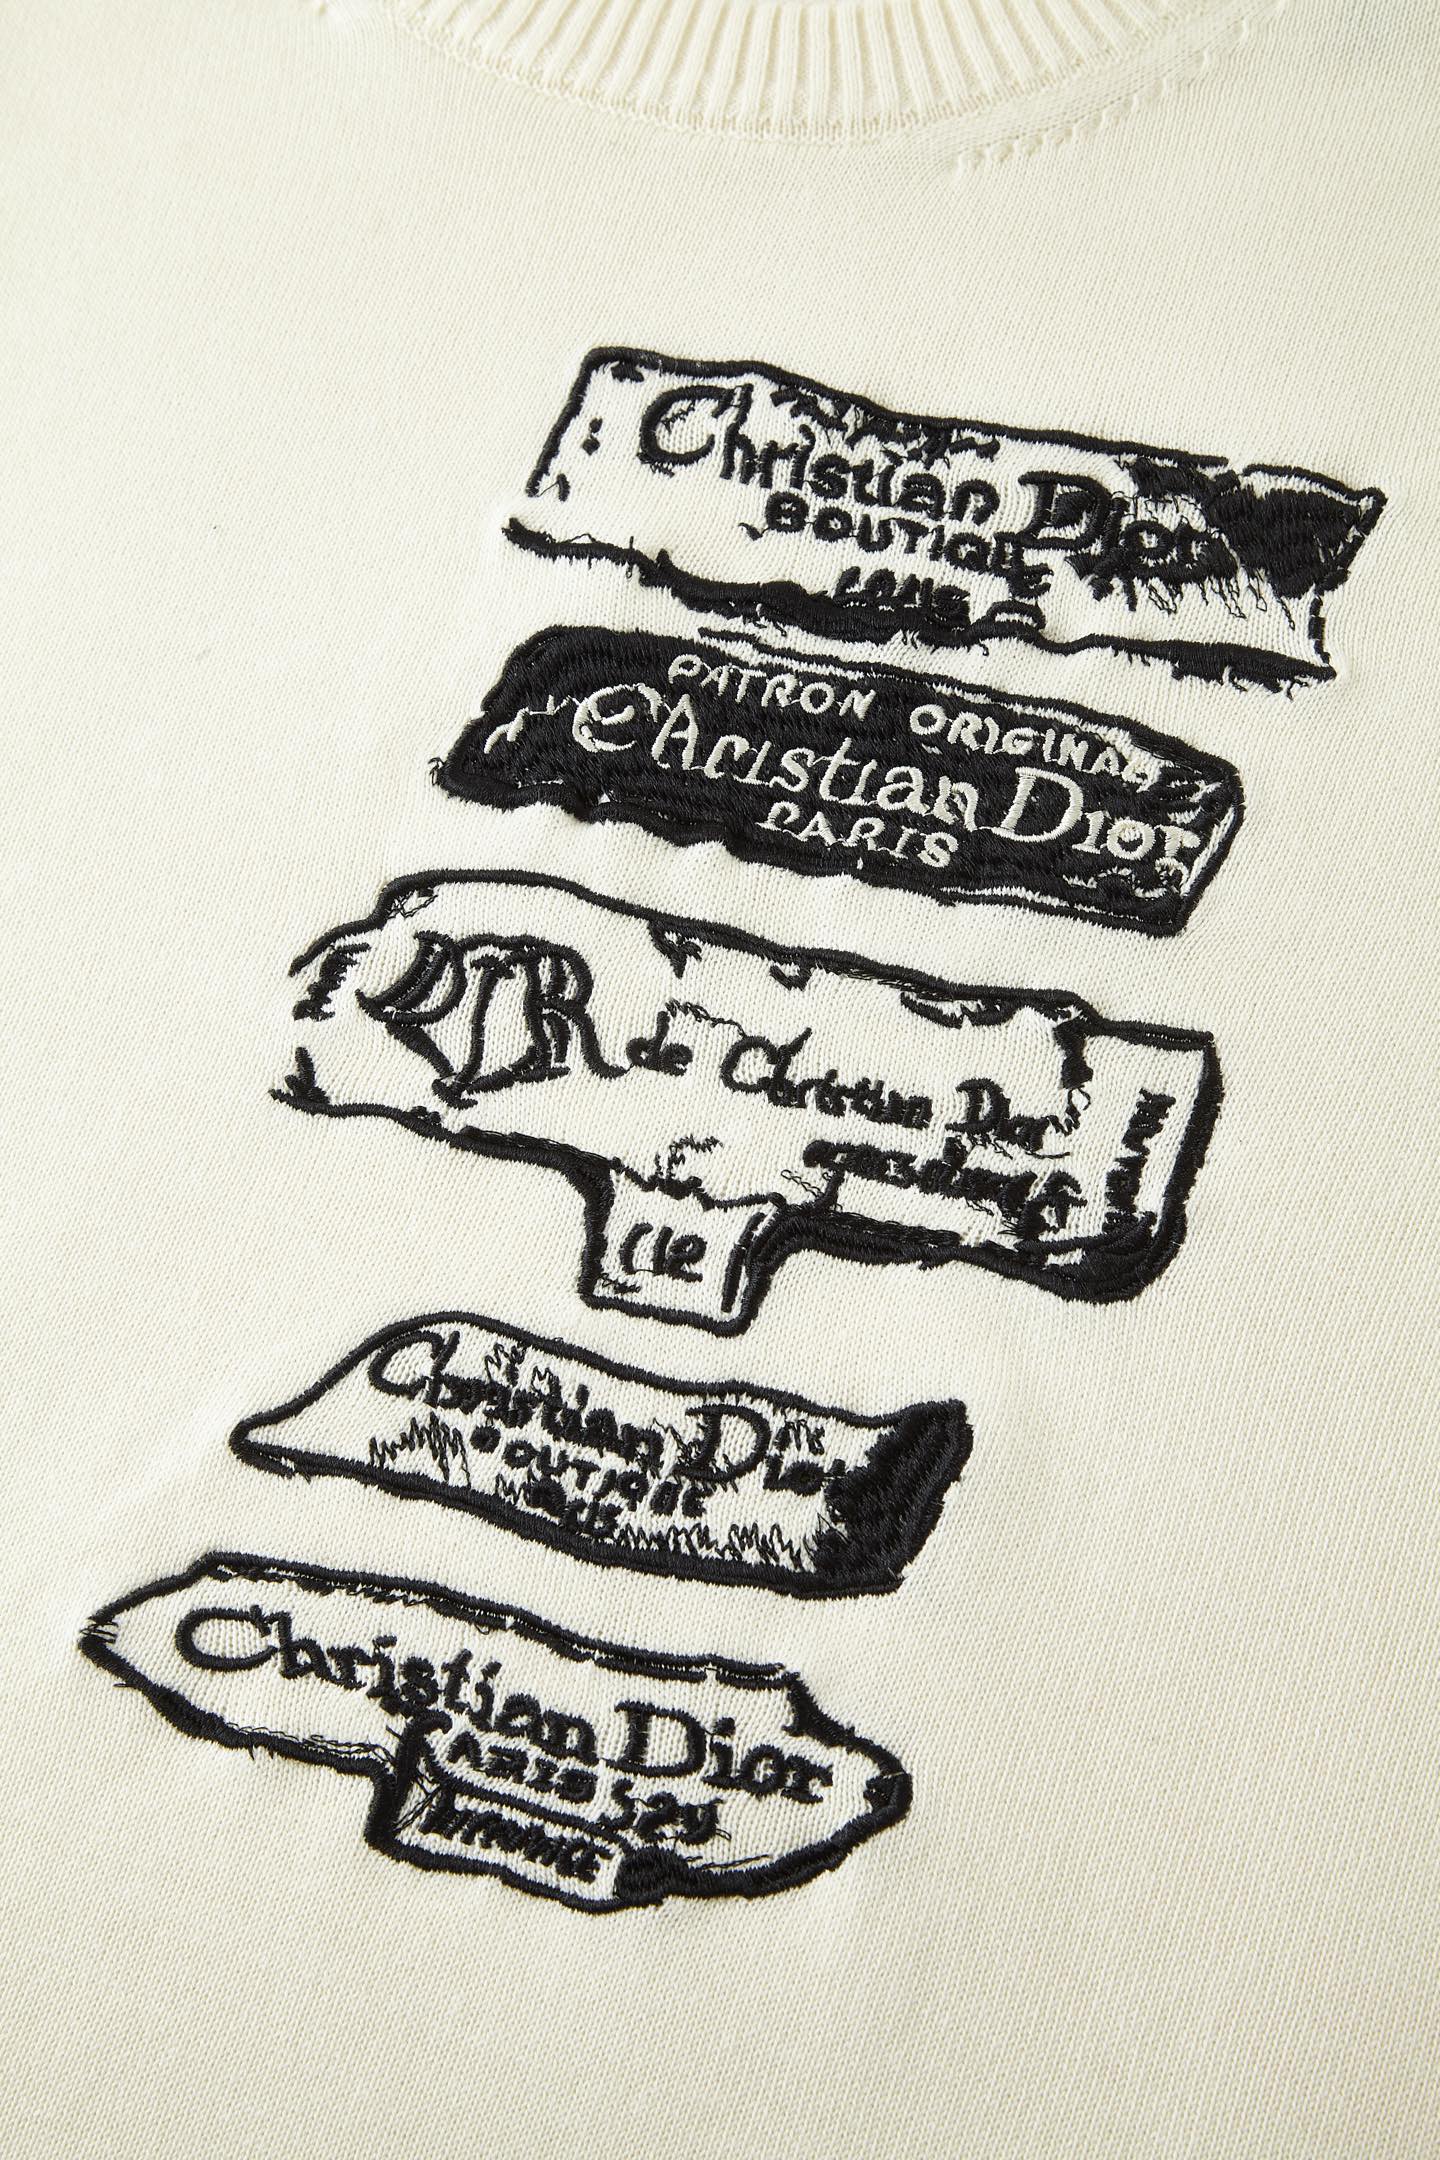 Christian Dior
BOUTIQUE
PATRON ORIGINAL
Christian Dior
PARIS
de Christian Dior
Christian Dior
BOUTIQUE
PARIS
Christian Dior
PARIS